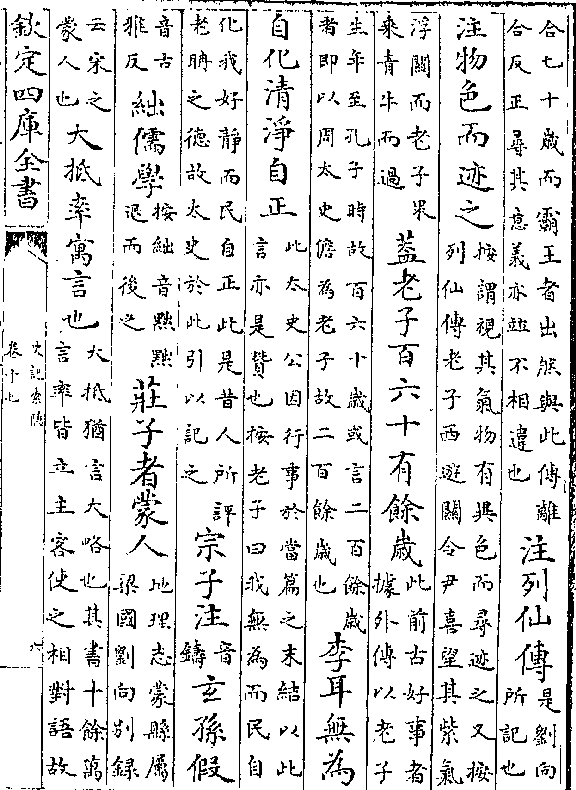 合七十歲而霸王者出然與此傳離
合反正尋其意義亦竝不相違也
注列仙傳
是劉向
所記也
注物色而迹之
按謂視其氣物有異色而尋迹之又按
列仙傳老子西遊關令尹喜望其紫氣
浮關而老子果
乘青牛而過
葢老子百六十有餘歲
此前古好事者
據外傳以老子
生年至孔子時故百六十歲或言二百餘歲
者即以周太史儋為老子故二百餘歲也
李耳無為
自化清淨自正
此太史公因行事於當篇之末結以此
言亦是贊也按老子曰我無為而民自
化我好靜而民自正此是昔人所評
老聃之德故太史於此引以記之
宗子注
音
鑄
玄孫假
音古
雅反
絀儒學
按絀音黜黜
退而後之
莊子者蒙人
地理志蒙縣屬
梁國劉向别録
云宋之
蒙人也
大抵率寓言也
大抵猶言大略也其書十餘萬
言率皆立主客使之相對語故
欽定四庫全書
史記索隱
卷十七